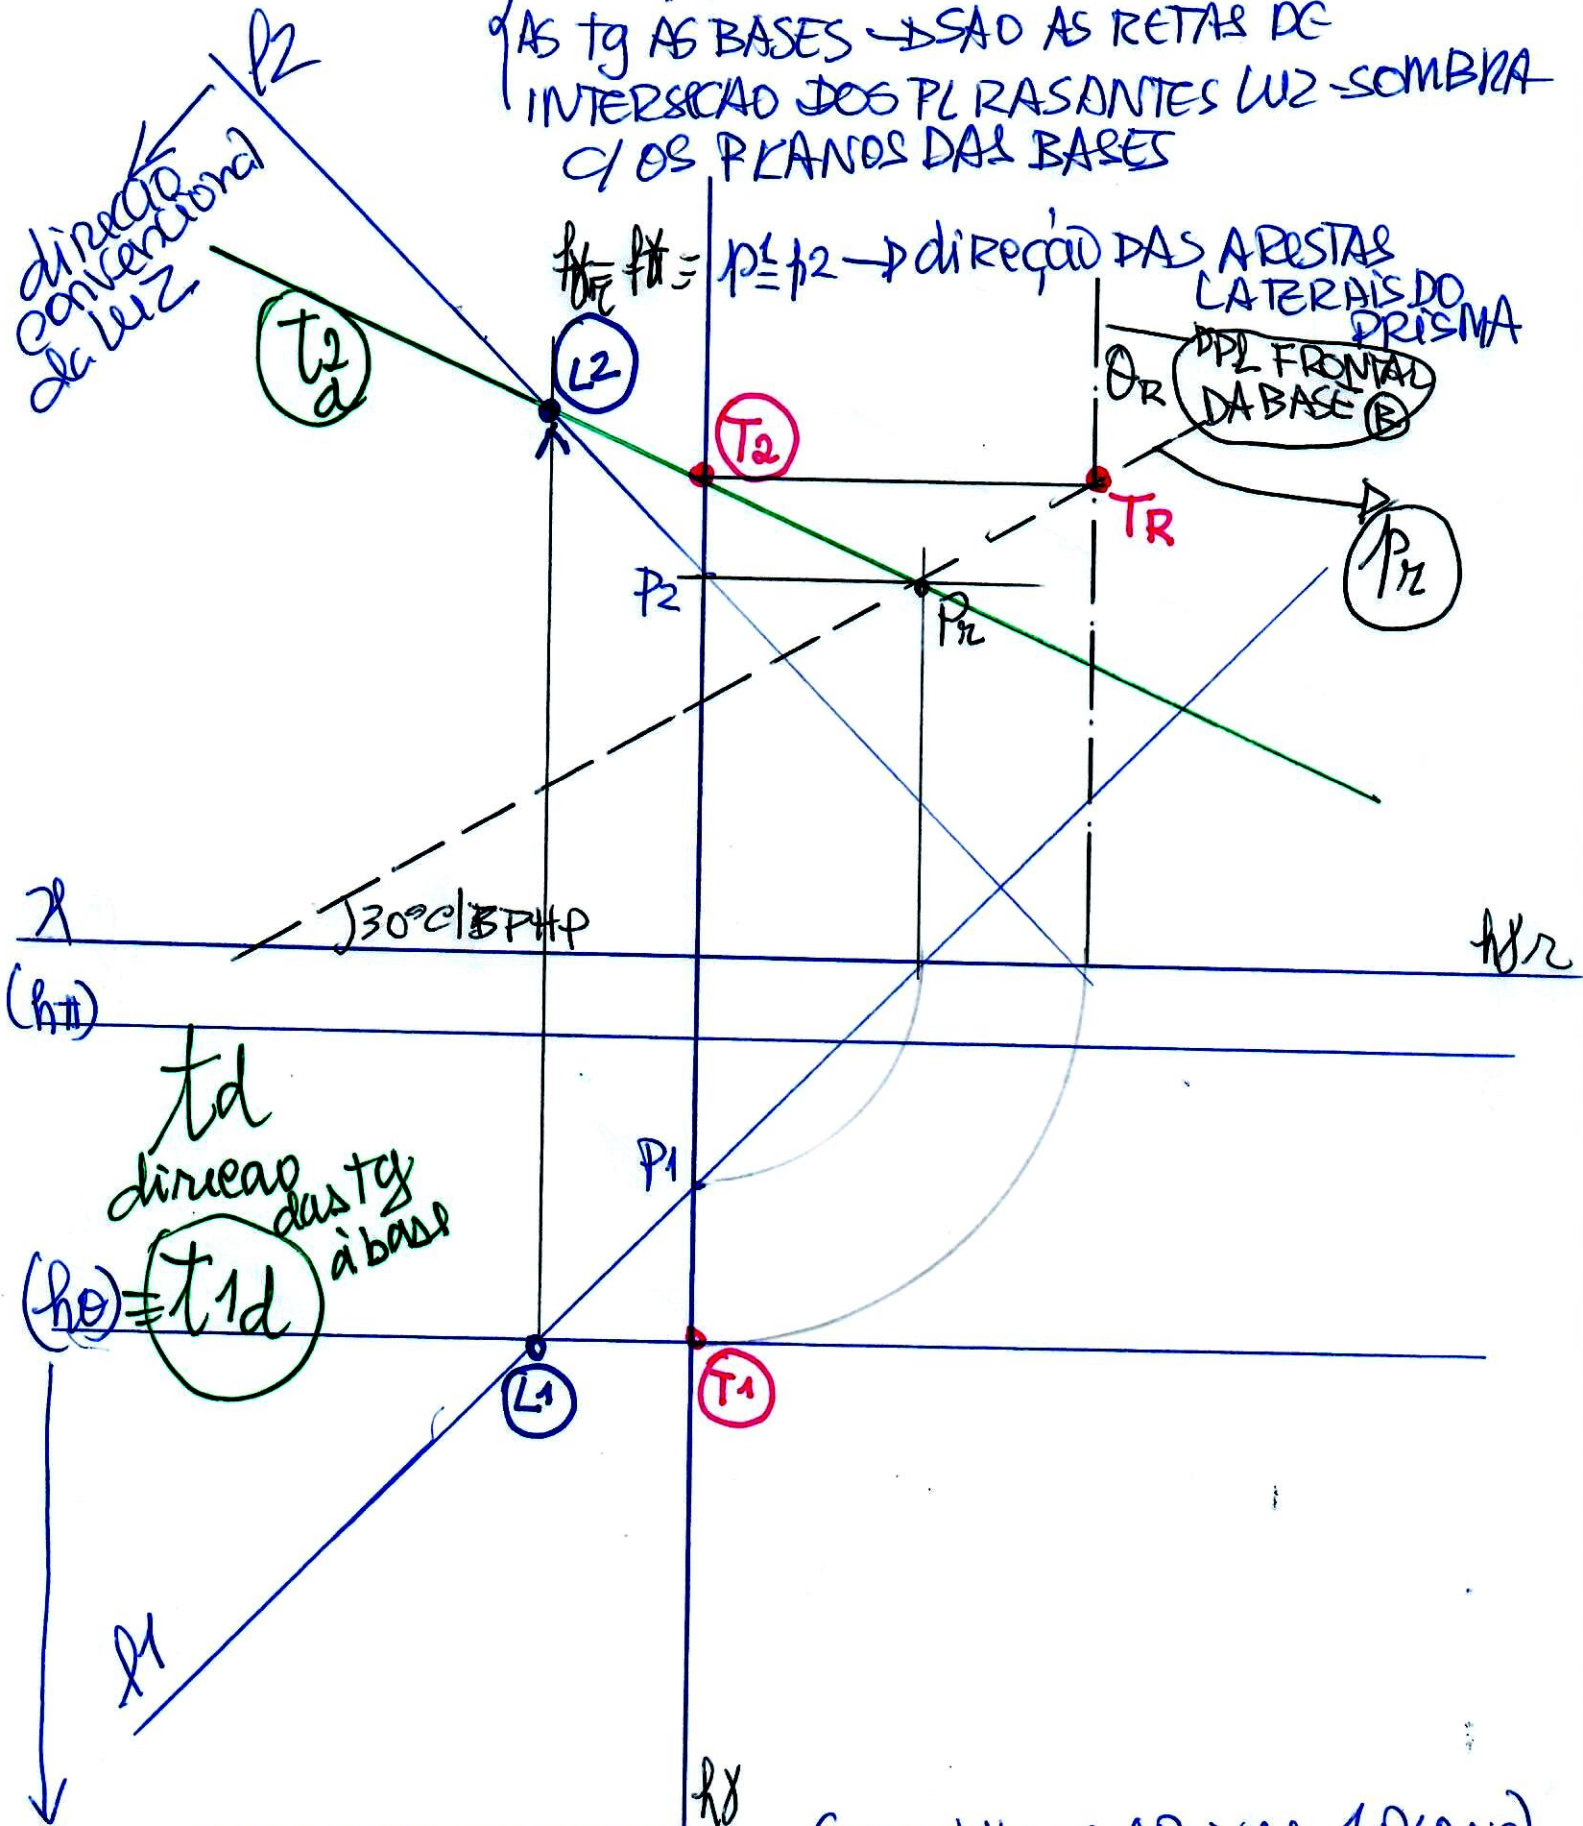 AS tg AS BASES → SAO AS RETAS DE
INTERSECAO DOS PL RASANTES LUZ-SOMBRA
C/ OS PLANOS DAS BASES
l2
direção
convencional
da luz
p1≡p2 → direção DAS ARESTAS
LATERAIS DO
PRISMA
t2
d
L2
T2
θR
PL FRONTAL
DA BASE B
TR
Pr
P2
Pr
x
30° C/ BPHP
hγr
(hπ)
td
direcao
das tg
à base
P1
(hθ)≡t1d
L1
T1
l1
hγ